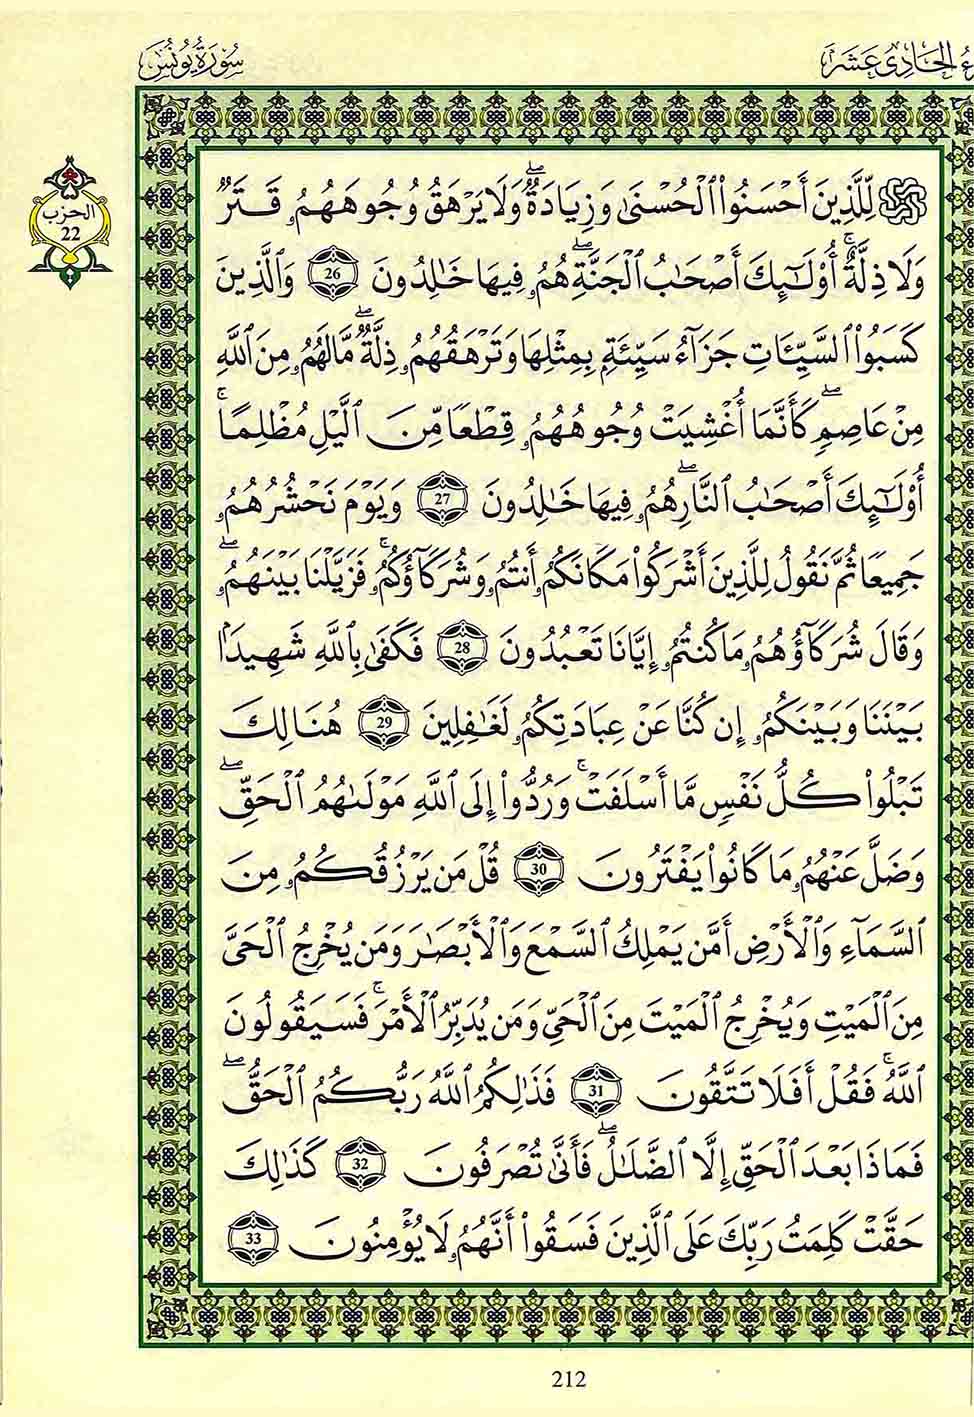 ءُ الْحَادِى عَشَرَ
سُورَةُ يُونُسَ
الحزب
22
لِّلَّذِينَ أَحْسَنُواْ الْحُسْنَىٰ وَزِيَادَةٌۖ وَلَا يَرْهَقُ وُجُوهَهُمُۥ قَتَرٌ
وَلَا ذِلَّةٌۚ أُوْلَٰٓئِكَ أَصْحَٰبُ الْجَنَّةِۖ هُمُۥ فِيهَا خَٰلِدُونَ 26 وَالَّذِينَ
كَسَبُواْ السَّيِّـَٔاتِ جَزَآءُ سَيِّئَةِۭ بِمِثْلِهَا وَتَرْهَقُهُمُۥ ذِلَّةٌۖ مَّا لَهُمُۥ مِنَ اللَّهِ
مِنْ عَاصِمٍۖ كَأَنَّمَا أُغْشِيَتْ وُجُوهُهُمُۥ قِطْعًا مِّنَ الَّيْلِ مُظْلِمًاۚ
أُوْلَٰٓئِكَ أَصْحَٰبُ النَّارِۖ هُمُۥ فِيهَا خَٰلِدُونَ 27 وَيَوْمَ نَحْشُرُهُمُۥ
جَمِيعًا ثُمَّ نَقُولُ لِلَّذِينَ أَشْرَكُواْ مَكَانَكُمُۥ أَنتُمُۥ وَشُرَكَآؤُكُمُۥۚ فَزَيَّلْنَا بَيْنَهُمُۥۖ
وَقَالَ شُرَكَآؤُهُمُۥ مَا كُنتُمُۥ إِيَّانَا تَعْبُدُونَ 28 فَكَفَىٰ بِاللَّهِ شَهِيدَۢا
بَيْنَنَا وَبَيْنَكُمُۥ إِن كُنَّا عَنْ عِبَادَتِكُمُۥ لَغَٰفِلِينَ 29 هُنَالِكَ
تَبْلُواْ كُلُّ نَفْسٍ مَّا أَسْلَفَتْۚ وَرُدُّواْ إِلَى اللَّهِ مَوْلَىٰهُمُ الْحَقِّۖ
وَضَلَّ عَنْهُمُۥ مَا كَانُواْ يَفْتَرُونَ 30 قُلْ مَن يَرْزُقُكُمُۥ مِنَ
السَّمَآءِ وَالْأَرْضِ أَمَّن يَمْلِكُ السَّمْعَ وَالْأَبْصَٰرَ وَمَن يُخْرِجُ الْحَىَّ
مِنَ الْمَيْتِ وَيُخْرِجُ الْمَيْتَ مِنَ الْحَىِّ وَمَن يُدَبِّرُ الْأَمْرَۚ فَسَيَقُولُونَ
اللَّهُۚ فَقُلْ أَفَلَا تَتَّقُونَ 31 فَذَٰلِكُمُ اللَّهُ رَبُّكُمُ الْحَقُّۖ
فَمَاذَا بَعْدَ الْحَقِّ إِلَّا الضَّلَٰلُۖ فَأَنَّىٰ تُصْرَفُونَ 32 كَذَٰلِكَ
حَقَّتْ كَلِمَتُ رَبِّكَ عَلَى الَّذِينَ فَسَقُواْ أَنَّهُمُۥ لَا يُؤْمِنُونَ 33
212